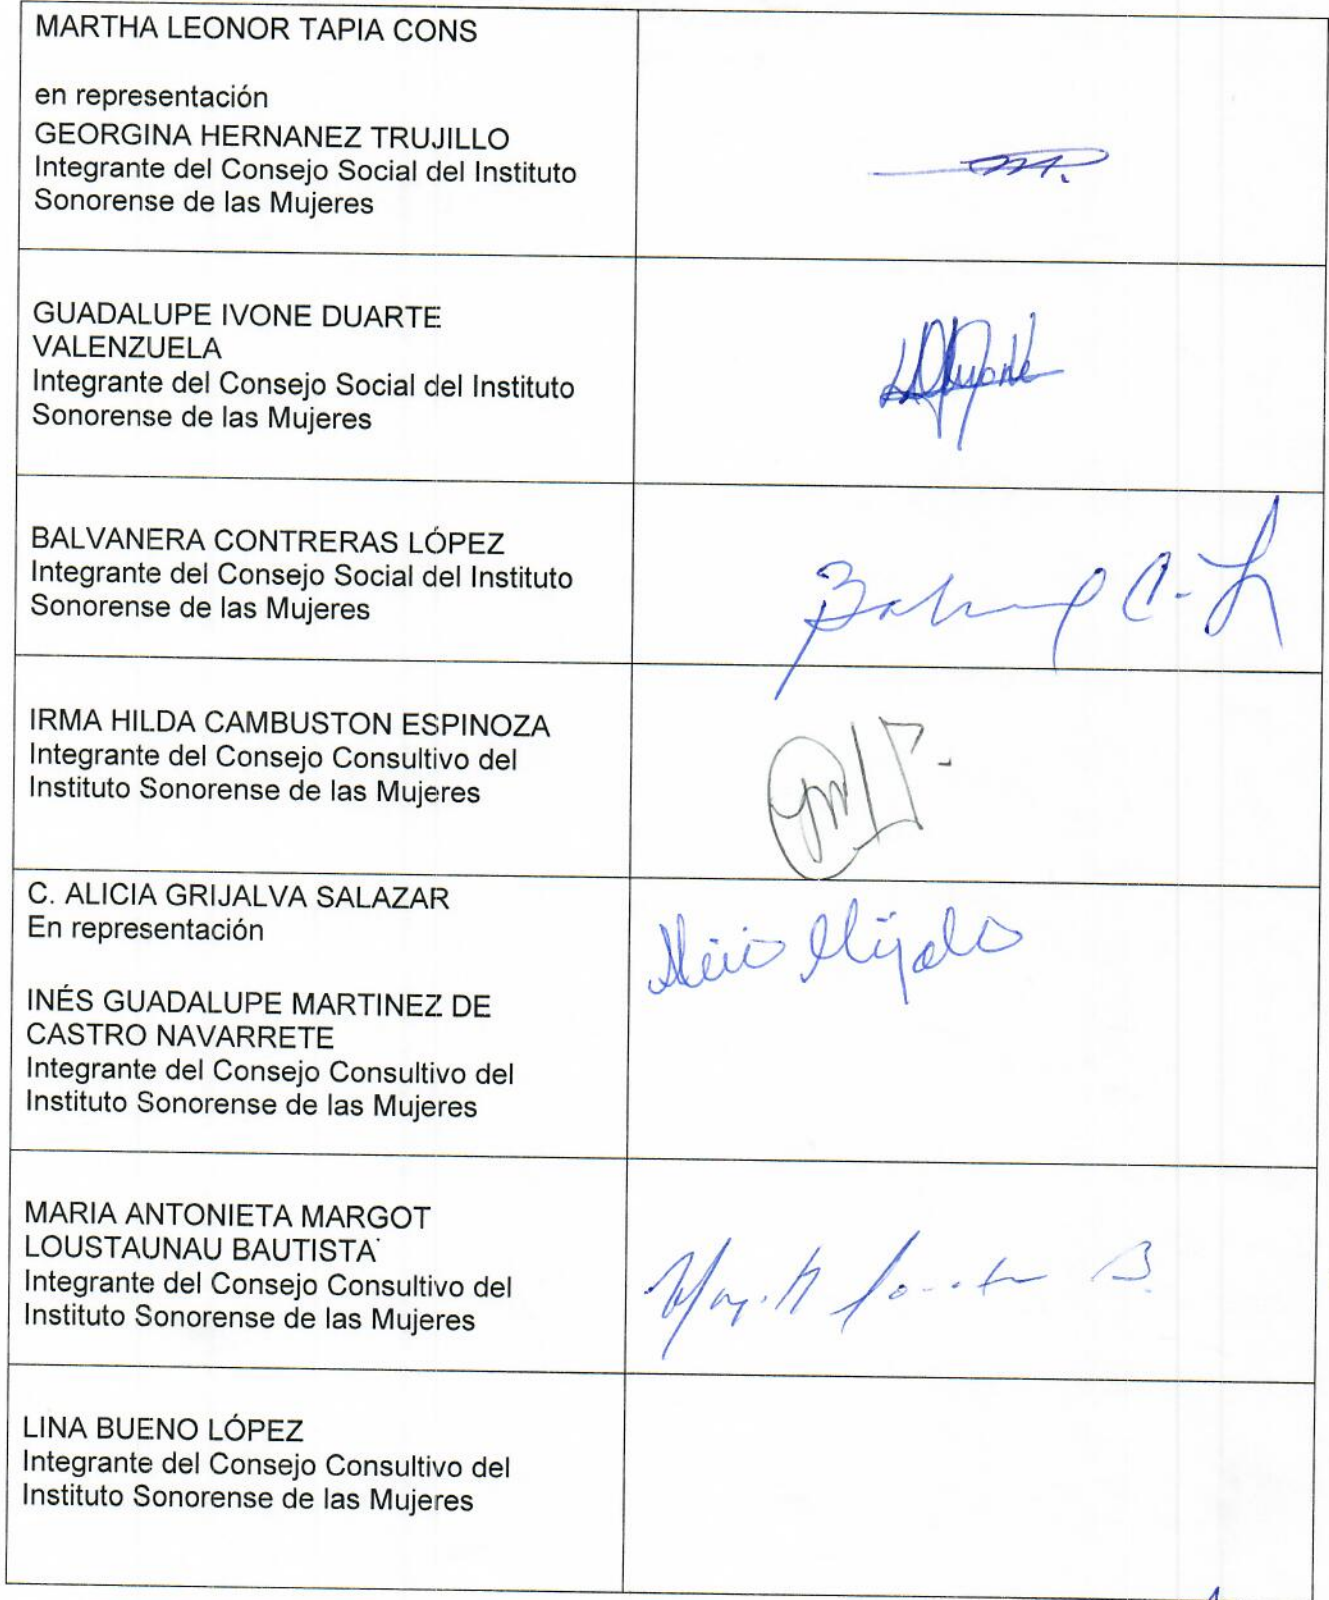 MARTHA LEONOR TAPIA CONS
en representación
GEORGINA HERNANEZ TRUJILLO
Integrante del Consejo Social del Instituto
Sonorense de las Mujeres
GUADALUPE IVONE DUARTE
VALENZUELA
Integrante del Consejo Social del Instituto
Sonorense de las Mujeres
BALVANERA CONTRERAS LÓPEZ
Integrante del Consejo Social del Instituto
Sonorense de las Mujeres
IRMA HILDA CAMBUSTON ESPINOZA
Integrante del Consejo Consultivo del
Instituto Sonorense de las Mujeres
C. ALICIA GRIJALVA SALAZAR
En representación
INÉS GUADALUPE MARTINEZ DE
CASTRO NAVARRETE
Integrante del Consejo Consultivo del
Instituto Sonorense de las Mujeres
MARIA ANTONIETA MARGOT
LOUSTAUNAU BAUTISTA
Integrante del Consejo Consultivo del
Instituto Sonorense de las Mujeres
LINA BUENO LÓPEZ
Integrante del Consejo Consultivo del
Instituto Sonorense de las Mujeres